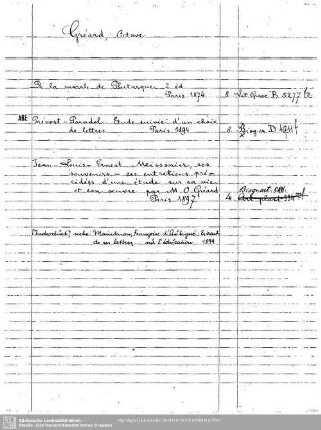 Gréard, Octave
De la morale de Plutarque 2 éd
Paris 1874 8 Lit. Graec. B. 5277
ABE Prévost-Paradol. Etude suivie d'un choix
de lettres Paris 1894 8 Biogr. er. D
Jean-Louis-Ernest Meissonier, ses
souvenirs - ses entretiens pré-
cédés d'une étude sur sa vie
et son œuvre par M. O. Gréard
Paris 1897 4
Maintenon, Françoise d'Aubigné: Extrait
de ses lettres sur l'éducation
Sächsische Landesbibliothek -
Staats- und Universitätsbibliothek Dresden